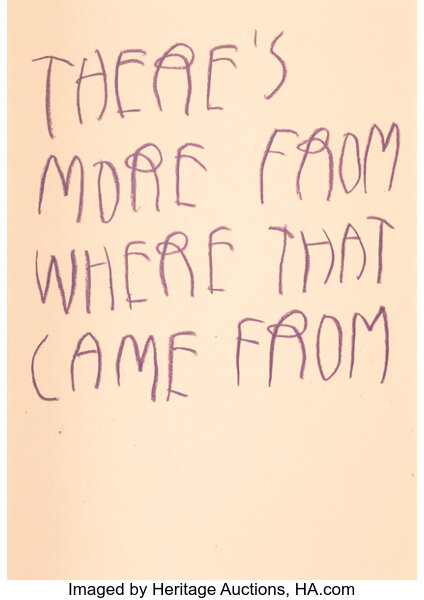 THERE'S
MORE FROM
WHERE THAT
CAME FROM
Imaged by Heritage Auctions, HA.com